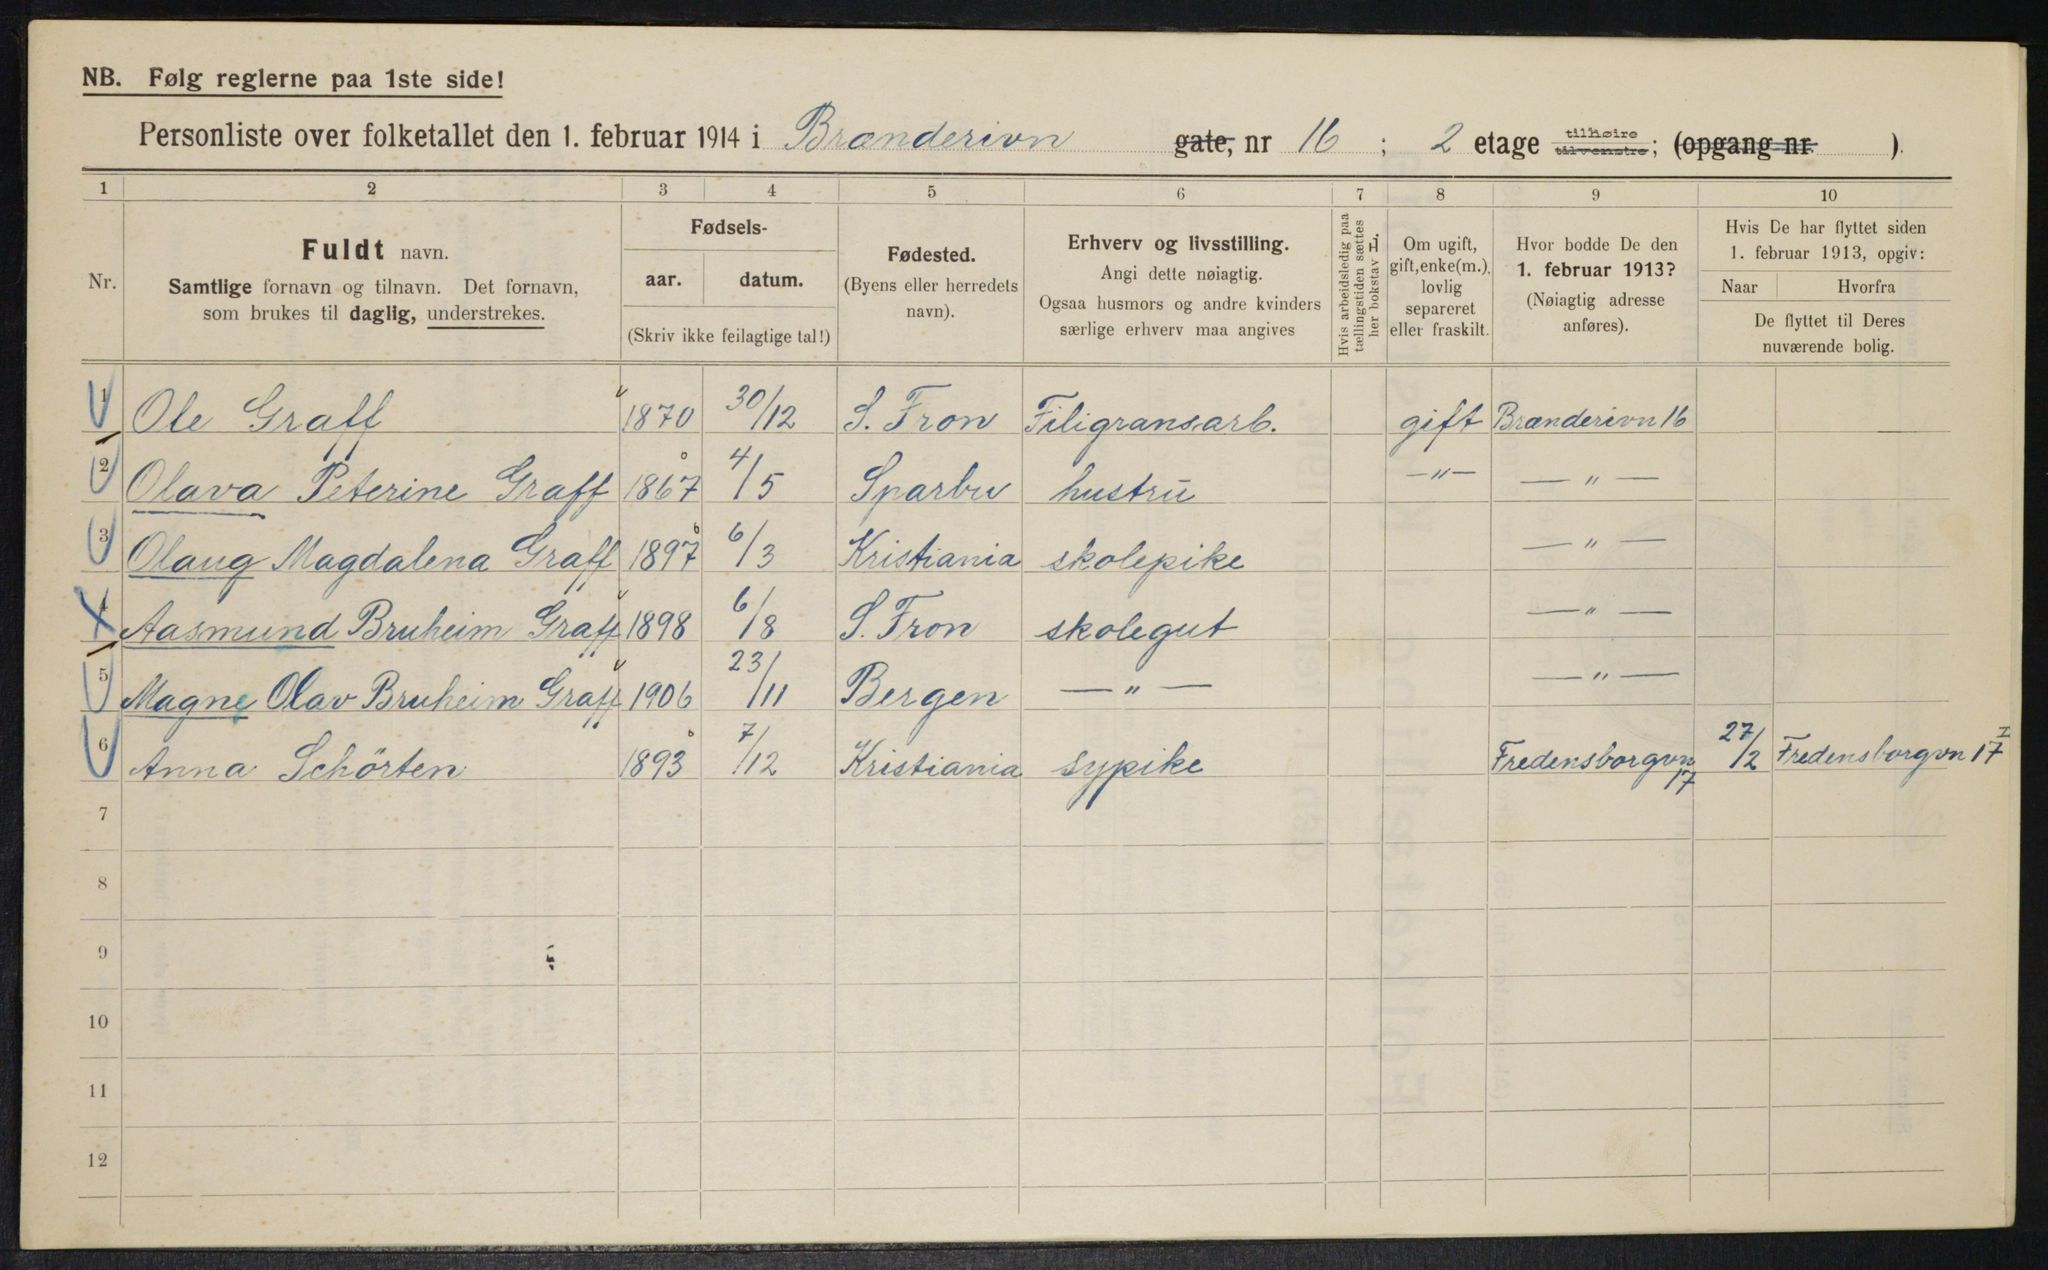 NB. Følg reglerne paa 1ste side!
Personliste over folketallet den 1. februar 1914 i Brænderivn gate, nr 16 ; 2 etage tilhøire tilvenstre; (opgang nr. ).
1 2 3 4 5 6 7 8 9 10
Nr.
Fuldt navn.
Samtlige fornavn og tilnavn. Det fornavn,
som brukes til daglig, understrekes.
Fødsels-
aar. datum.
(Skriv ikke feilagtige tal!)
Fødested.
(Byens eller herredets
navn).
Erhverv og livsstilling.
Angi dette nøiagtig.
Ogsaa husmors og andre kvinders
særlige erhverv maa angives
Hvis arbeidsledig paa
tællingstiden sættes
her bokstav L.
Om ugift,
gift, enke(m.),
lovlig
separeret
eller fraskilt.
Hvor bodde De den
1. februar 1913?
(Nøiagtig adresse
anføres).
Hvis De har flyttet siden
1. februar 1913, opgiv:
Naar Hvorfra
De flyttet til Deres
nuværende bolig.
1 Ole Graff 1870 30/12 S. Fron Filigransarb. gift Brænderivn 16
2 Olava Peterine Graff 1867 4/5 Sparbu hustru —"— —"—
3 Olaug Magdalena Graff 1897 6/3 Kristiania skolepike —"—
4 Aasmund Bruheim Graff 1898 6/8 S. Fron skolegut —"—
5 Magne Olav Bruheim Graff 1906 23/11 Bergen —"— —"—
6 Anna Schörten 1893 7/12 Kristiania sypike Fredensborgvn 17 27/2 Fredensborgvn 17 I
7
8
9
10
11
12